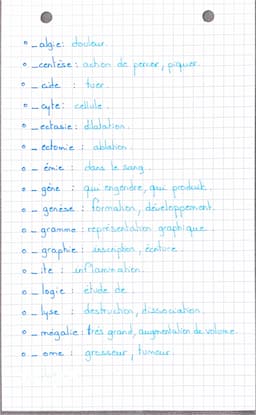 ° _algie : douleur.
° _centèse : action de percer, piquer.
° _ cide : tuer.
° _ cyte : cellule.
° _ ectasie : dilatation.
° _ ectomie : ablation.
° _ émie : dans le sang.
° _ gène : qui engendre, qui produit.
° _ genèse : formation, développement.
° _ gramme : représentation graphique.
° _ graphie : inscription, écriture.
° _ ite : inflammation.
° _ logie : étude de
° _ lyse : destruction, dissociation.
° _ mégalie : très grand, augmentation de volume.
° _ ome : grosseur, tumeur.